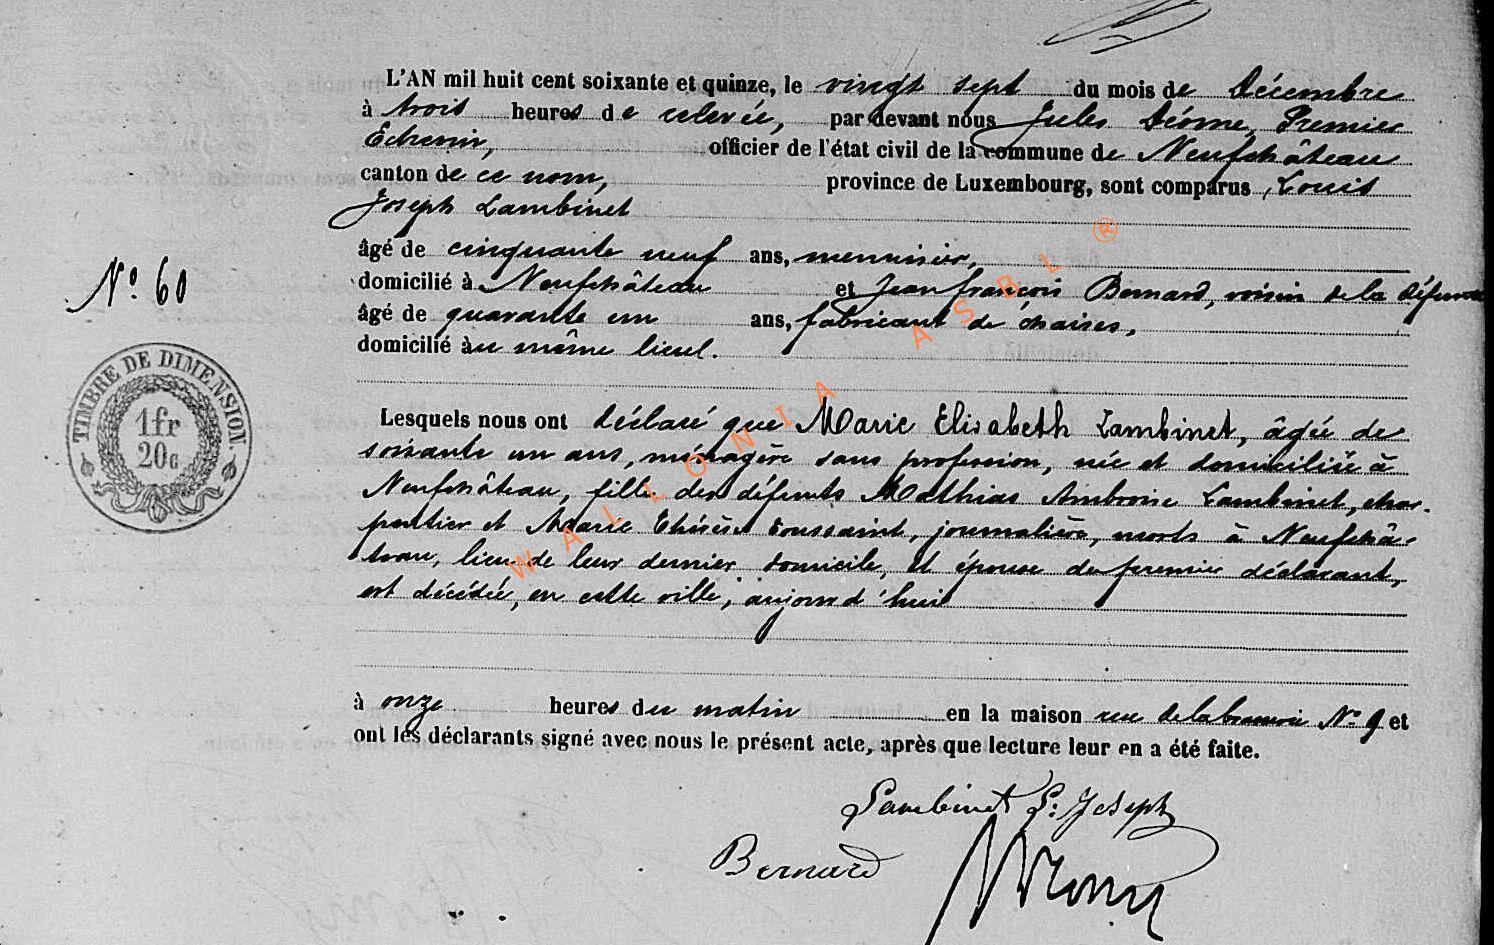 L'AN mil huit cent soixante et quinze, le vingt sept du mois de Décembre
à trois heures de relevée, par devant nous Jules Déome, Premier
Echevin, officier de l'état civil de la commune de Neufchâteau
canton de ce nom, province de Luxembourg, sont comparus Louis
Joseph Lambinet
âgé de cinquante neuf ans, menuisier,
N° 60
domicilié à Neufchâteau et Jean françois Bernard, voisin de la défunte
âgé de quarante un ans, fabricant de chaises,
domicilié au même lieu.
TIMBRE DE DIMENSION
1 fr
20c
Lesquels nous ont déclaré que Marie Elisabeth Lambinet, âgée de
soixante un ans, ménagère sans profession, née et domiciliée à
Neufchâteau, fille des défunts Mathias Ambroise Lambinet, char-
pentier et Marie Thérèse Toussaint, journalière, morts à Neufchâ-
teau, lieu de leur dernier domicile, et épouse du premier déclarant,
est décédée, en cette ville, aujourd'hui
à onze heures du matin en la maison rue de la brasserie N° 9 et
ont les déclarants signé avec nous le présent acte, après que lecture leur en a été faite.
Lambinet L: Joseph
Bernard
WALLONIA ASBL ®